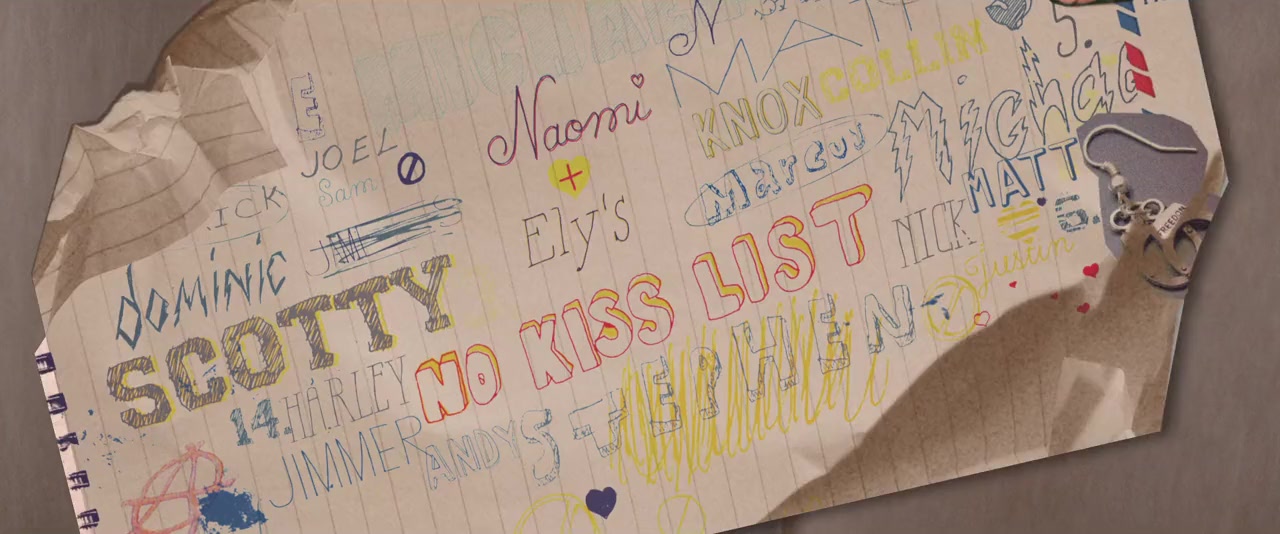 MATT
COLLIN
KNOX
Naomi
+
Ely's
NO KISS LIST
Marcus
Michael
MATT
NICK
5.
Justin
JOEL
Sam
dominic
SCOTTY
14.
HARLEY
JIMMER
ANDY
STEPHEN
A
FREEDOM